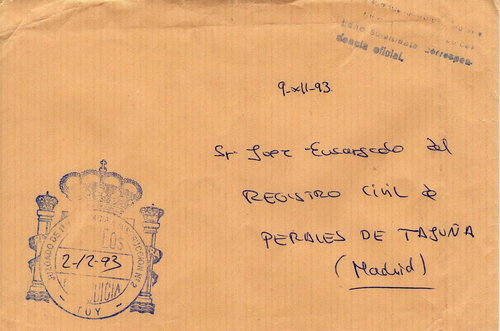 correspon-
dencia oficial.
9-XII-93
Sr. Juez Encargado del
REGISTRO CIVIL de
PERALES DE TAJUÑA
(Madrid)
JUZGADO DE
CCION Nº 2
2-12-93
- TUY -